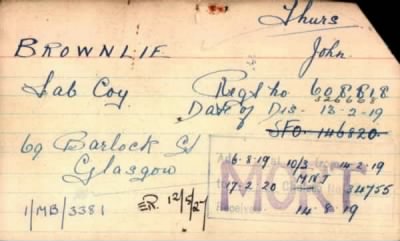 Thurs
BROWNLIE John.
Lab Coy. Regtl no 608818
326668
Date of Dis. 13-2-19
SFO. 146820
69 Barlock St
Glasgow
6-8-19 10/3 14-2-19
17-2 20 MNT 34755
MORT
14-8 19
1/MB/3381 ER. 12/5/27